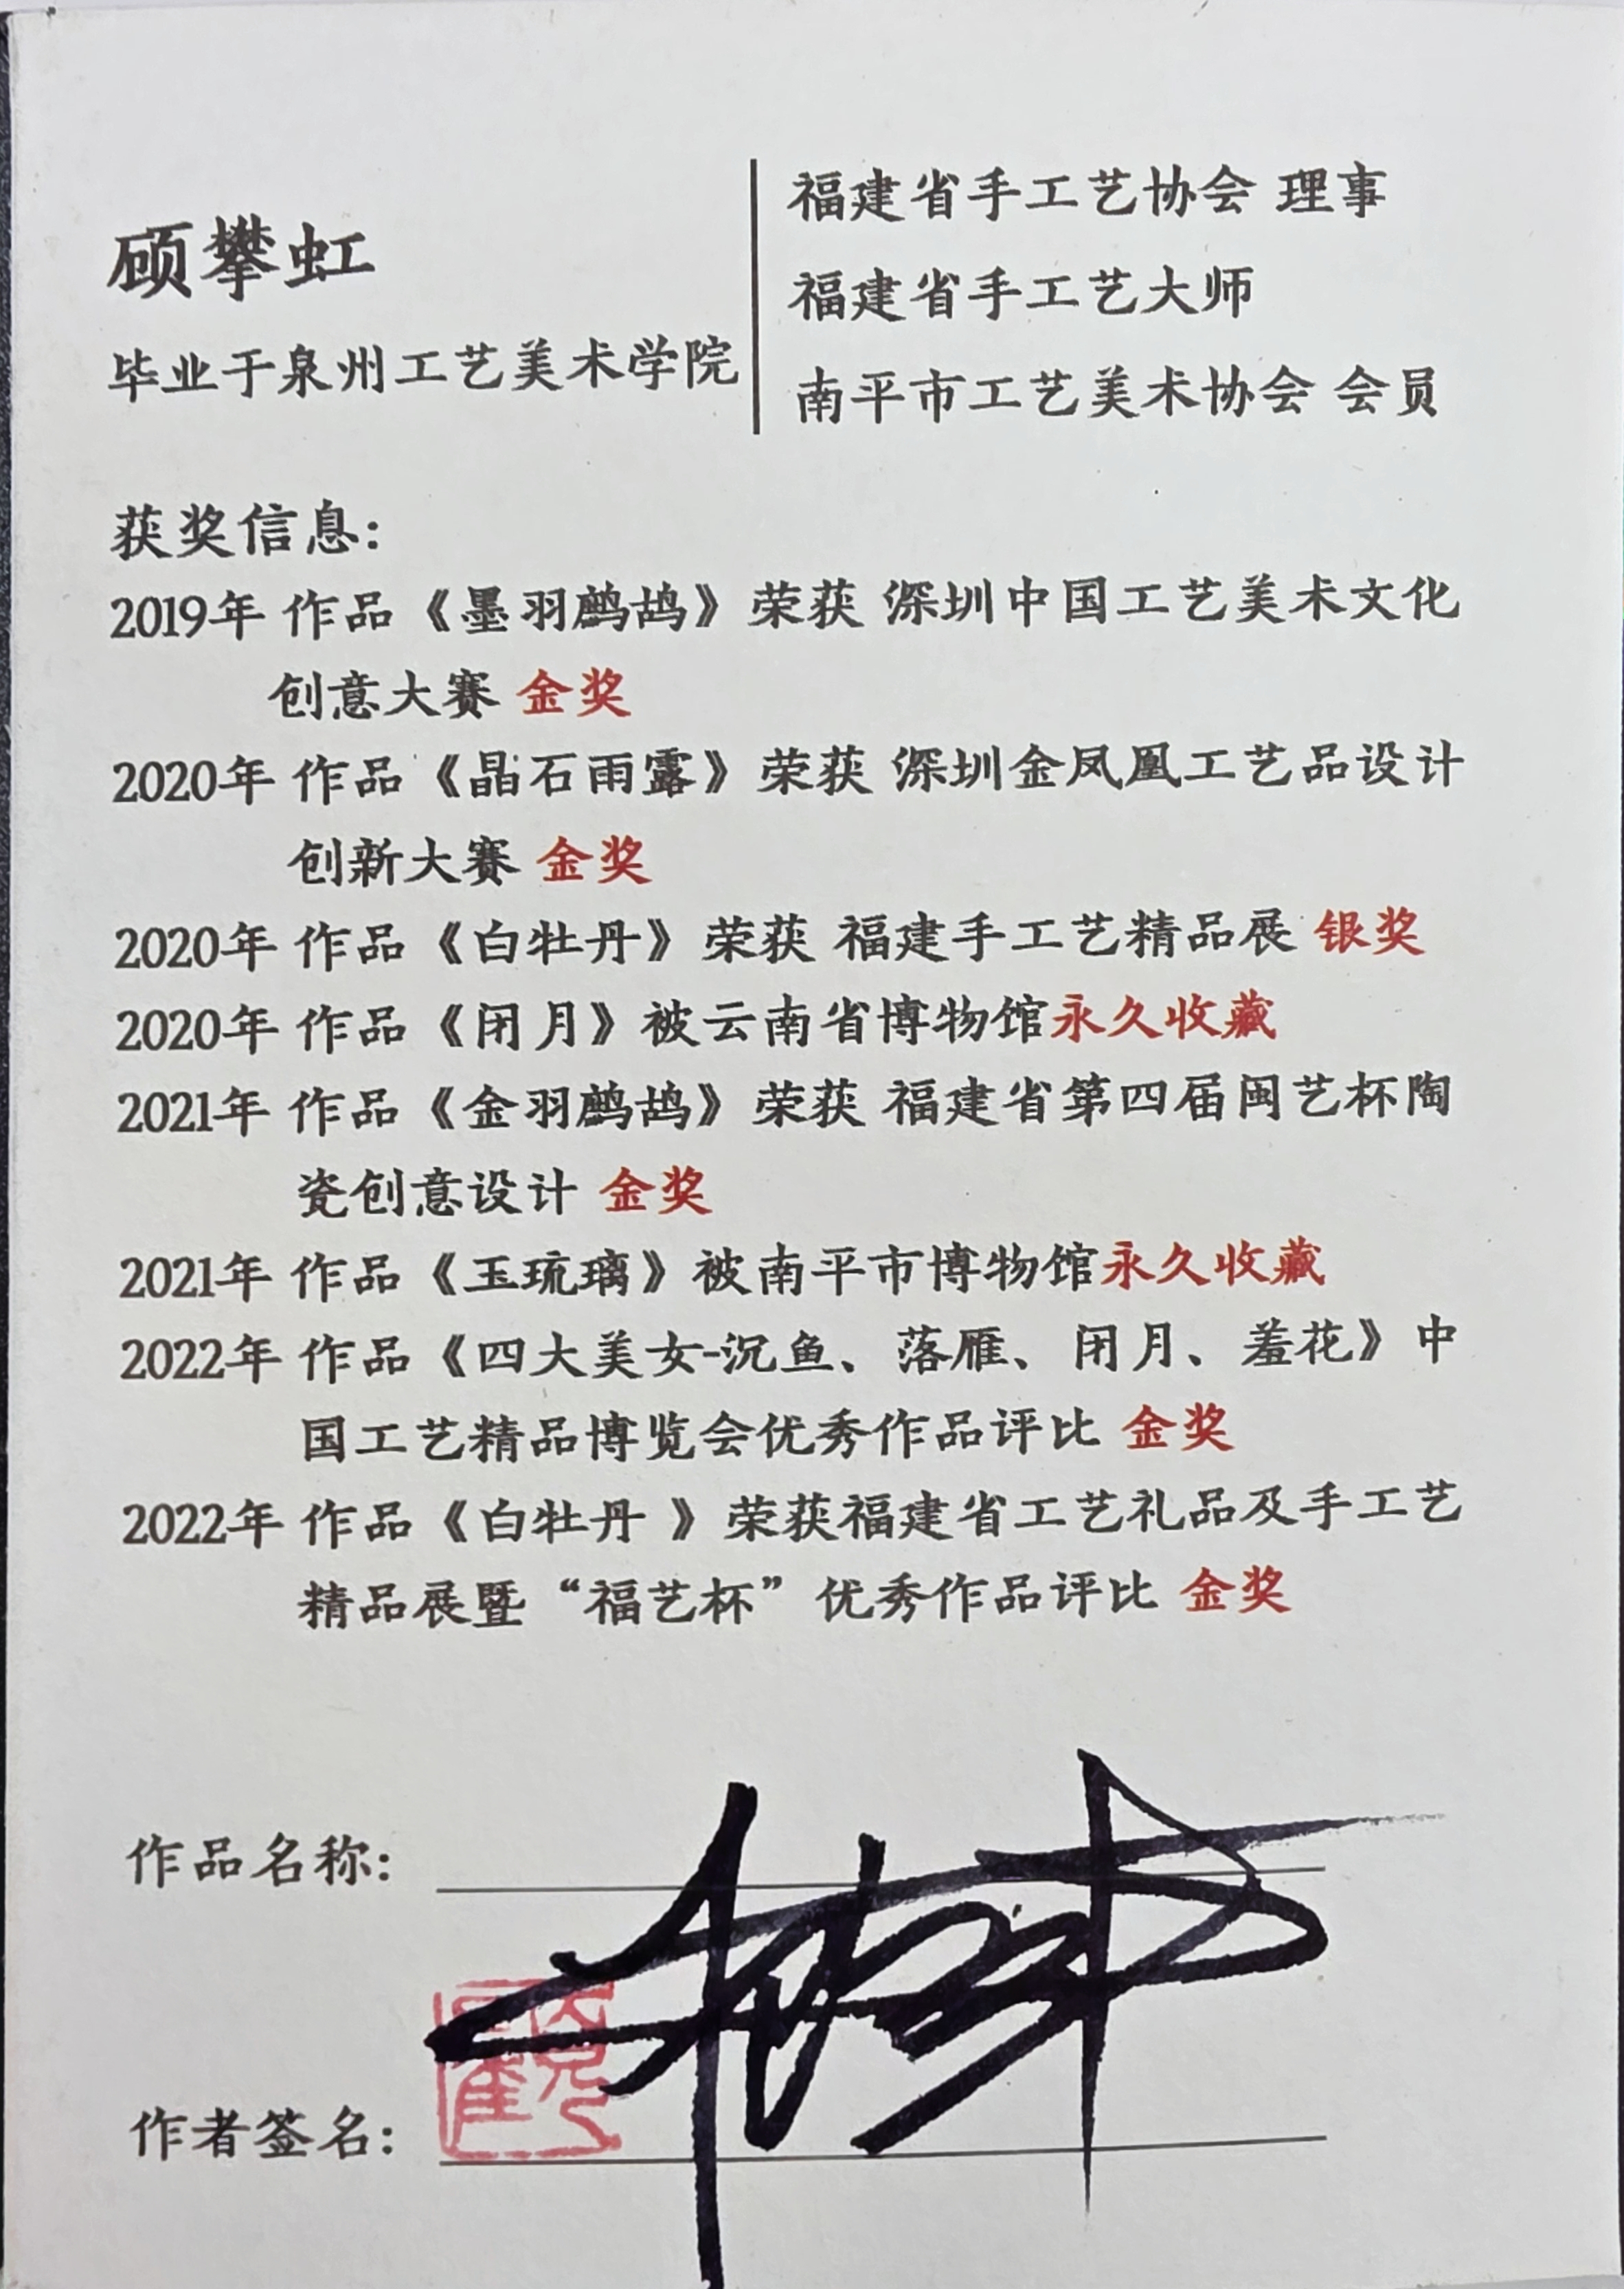 顾攀虹
毕业于泉州工艺美术学院
福建省手工艺协会 理事
福建省手工艺大师
南平市工艺美术协会 会员
获奖信息:
2019年 作品《墨羽鹧鸪》荣获 深圳中国工艺美术文化
创意大赛 金奖
2020年 作品《晶石雨露》荣获 深圳金凤凰工艺品设计
创新大赛 金奖
2020年 作品《白牡丹》荣获 福建手工艺精品展 银奖
2020年 作品《闭月》被云南省博物馆永久收藏
2021年 作品《金羽鹧鸪》荣获 福建省第四届闽艺杯陶
瓷创意设计 金奖
2021年 作品《玉琉璃》被南平市博物馆永久收藏
2022年 作品《四大美女-沉鱼、落雁、闭月、羞花》中
国工艺精品博览会优秀作品评比 金奖
2022年 作品《白牡丹 》荣获福建省工艺礼品及手工艺
精品展暨“福艺杯”优秀作品评比 金奖
作品名称:
作者签名: